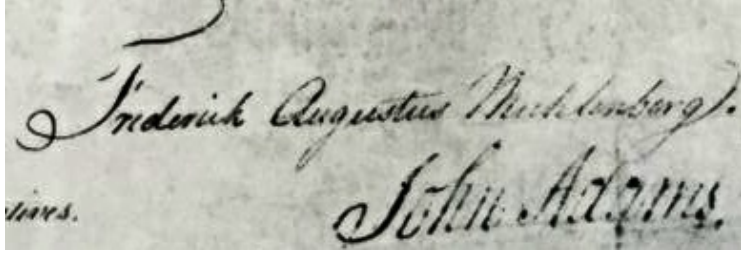 Frederick Augustus Muhlenberg.
John Adams.